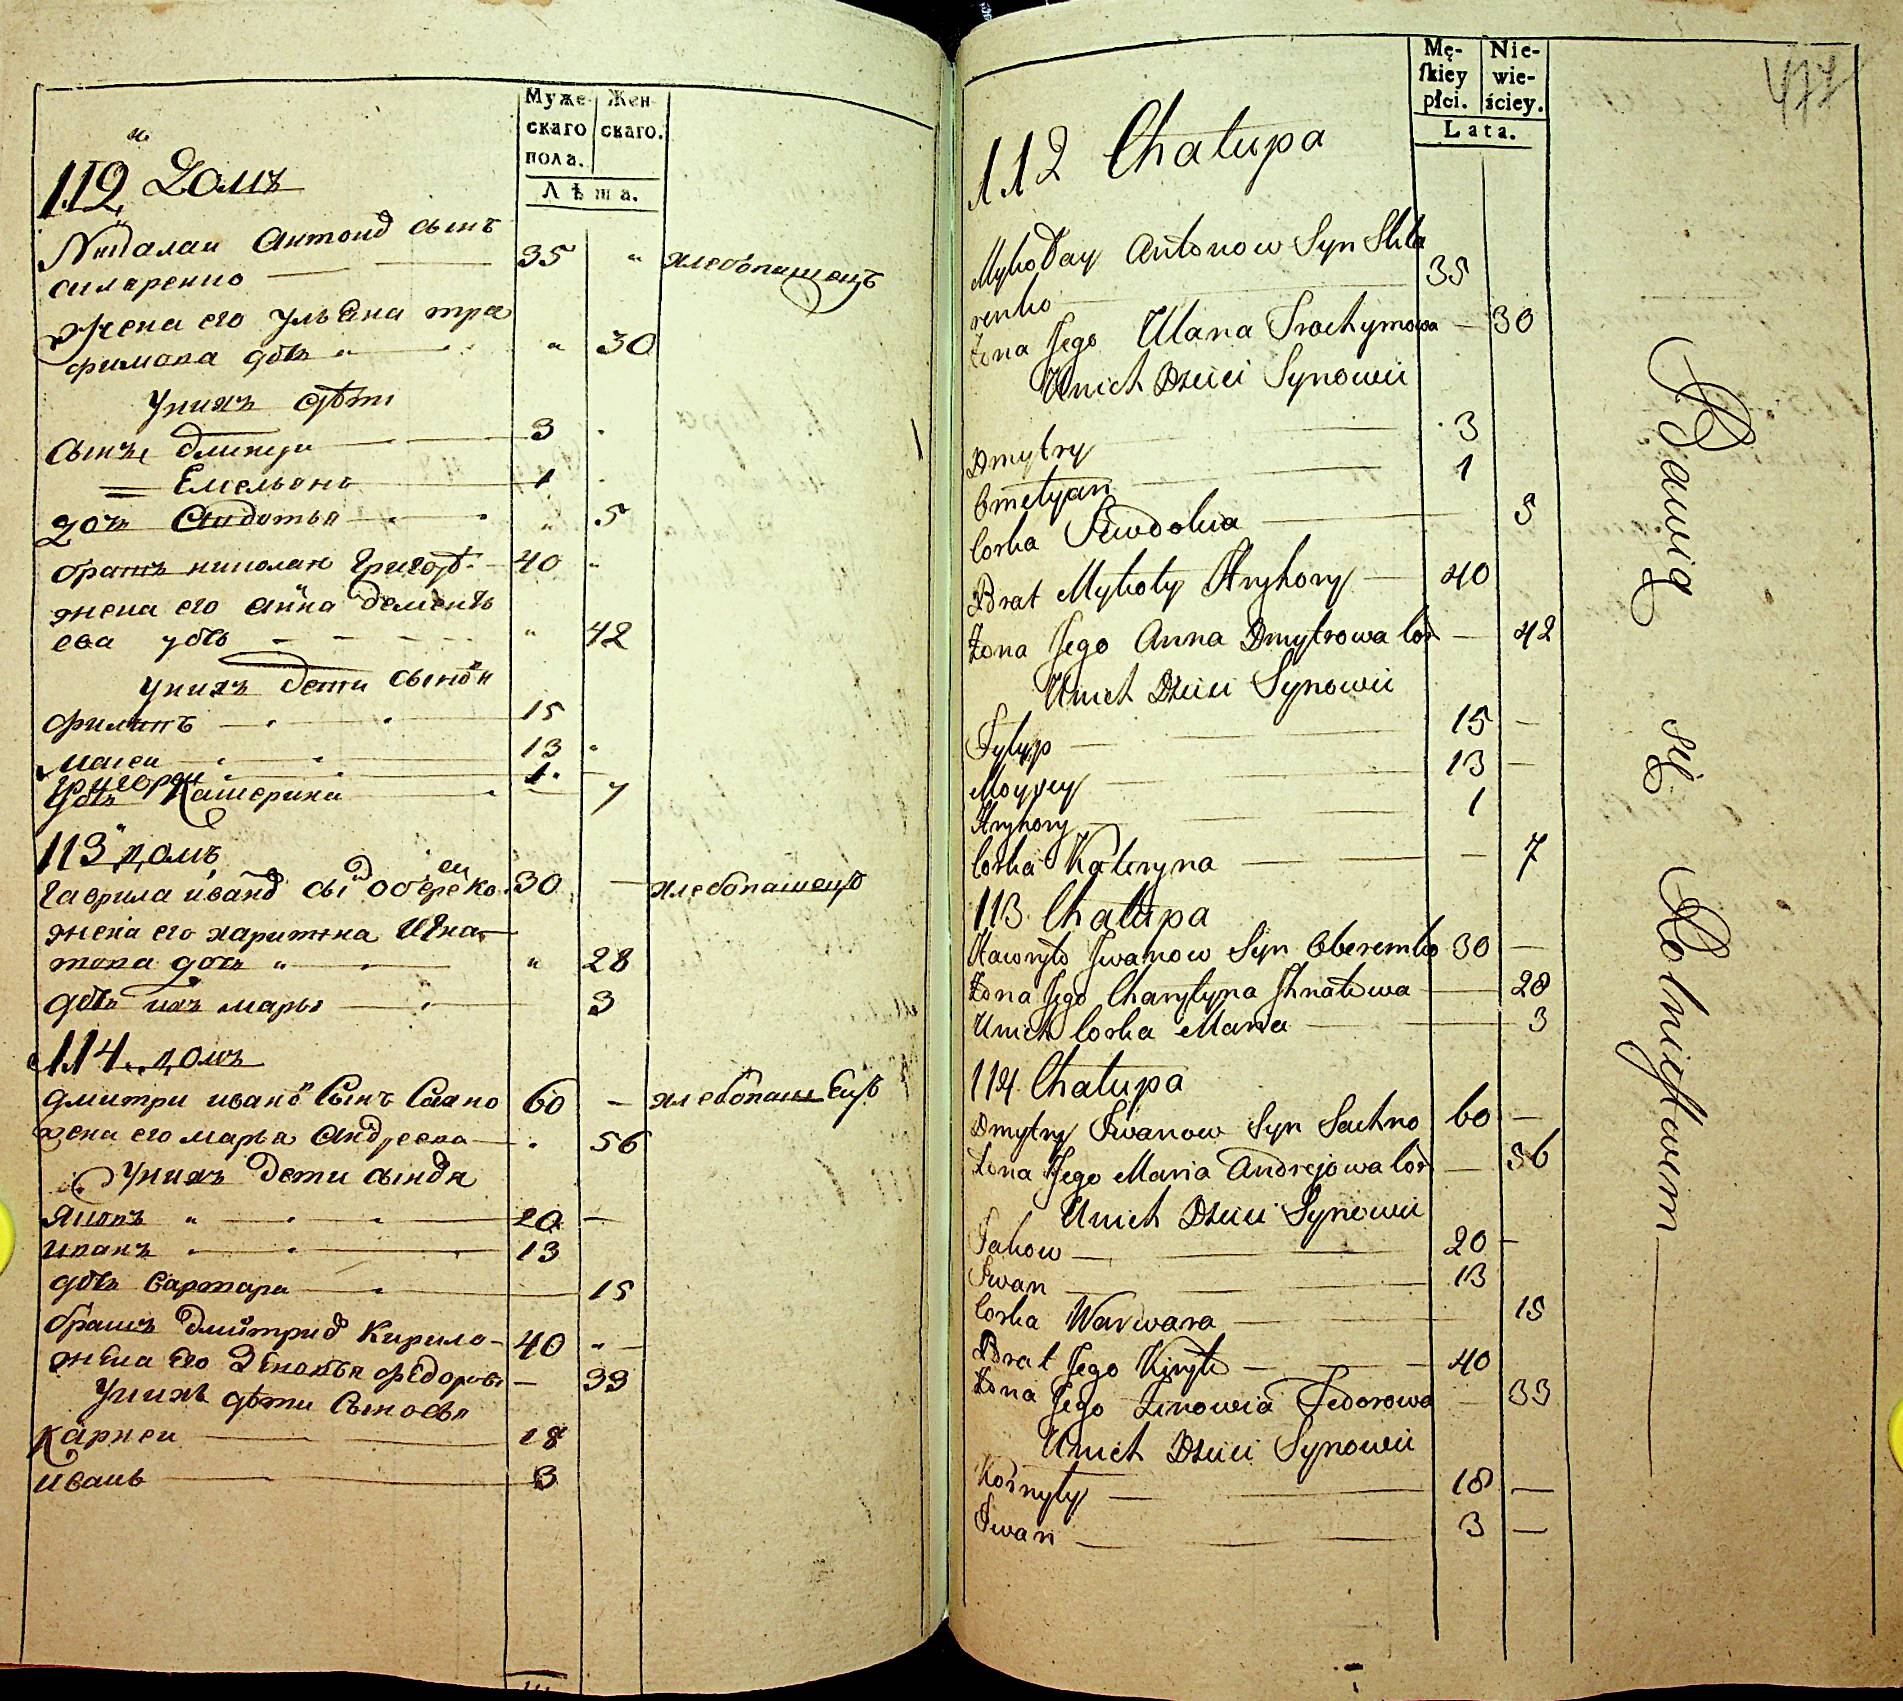 Муже-
скаго
пола.
Жен
скаго.
Лѣта.
112 Домъ
Николаи Антонов сынъ
35 " хлебопашецъ
жена его ульяна тро
фимова дочь " 30
у нихъ дѣти
сынъ дмитри 3
Емельянъ 1
дочь Явдотья 5
братъ николаю Григор 40
жена его анна дементь
ева дочь 42
у нихъ дети сыновя
филипъ 15
маісеи 13
григори 1
дочь Катерина 7
113 домъ
гаврила иванов сы оберемко 30 хлебопашецъ
жена его харитина Игна
това дочь " " 28
дочь ихъ марья 3
114 домъ
дмитри иванов Сынъ Сахно 60 хлебопашецъ
жена его марья андреева 56
у нихъ дети сыновя
яковъ 20
иванъ 13
дочь варвара 15
братъ дмитрив Кирило 40
жена Его Зеновья федоров 33
у нихъ дѣти Сыновья
Карнеи 18
иванъ 3
Mę-
ſkiey
płci.
Nie-
wie-
ściey.
Lata.
477
112 Chałupa
Mykołay Antonow Syn Skla
renko 35
Żona Jego Ulana Trochymowa 30
Unich Dzieci Synowii
Dmytry 3
Omelyan 1
Corka Ewdokia 5
Brat Mykoły Hryhory 40
Żona Jego Anna Dmytrowa Cor 42
Unich Dzieci Synowii
Fylyp 15
Moysey 13
Hryhory 1
Corka Kateryna 7
113 Chałupa
Hawryło Jwanow Syn Oberemko 30
Żona Jego Charytyna Jhnatowa 28
Unich Corka Maria 3
114 Chałupa
Dmytry Jwanow Syn Sachno 60
Żona Jego Maria Andrejowa Cor 56
Unich Dzieci Synowii
Jakow 20
Jwan 13
Corka Warwara 15
Brat Jego Kiryło 40
Żona Jego Zinowia Fedorowa 33
Unich Dzieci Synowii
Kornyły 18
Jwan 3
Bawią się Rolnictwem